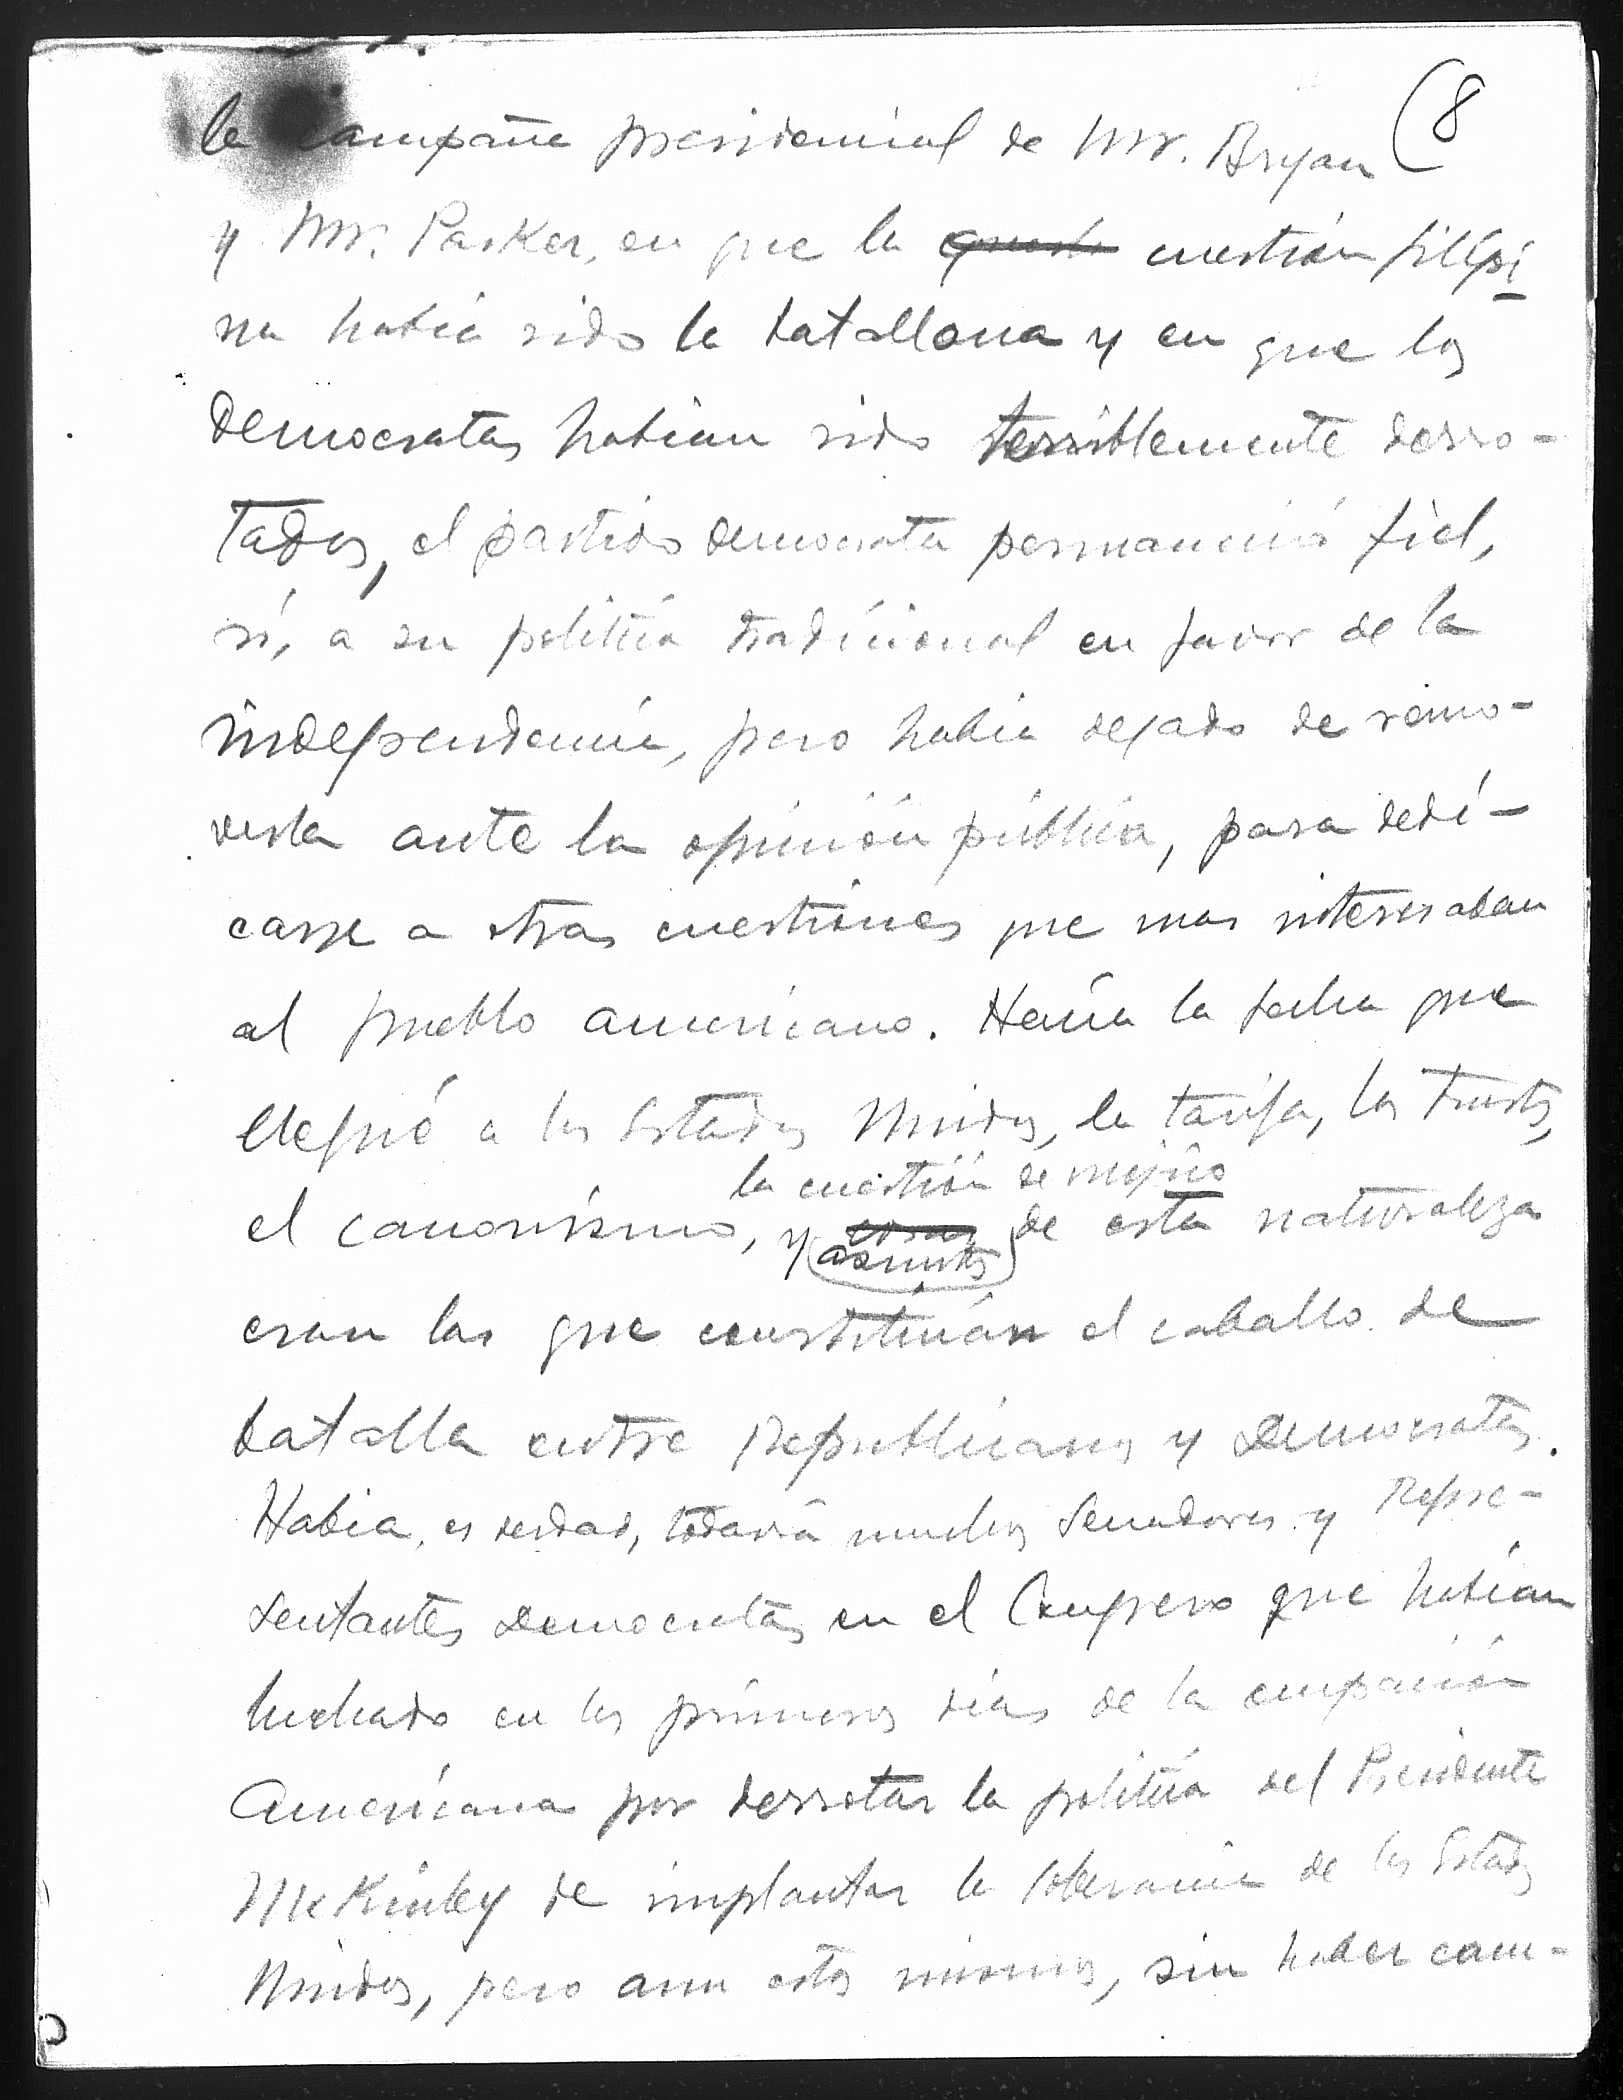 (8
la campaña presidencial de Mr. Bryan
y Mr. Parker, en que la cuestión filipi
na había sido la batallona y en que los
Democratas habian sido terriblemente derro-
tados, el partido democrata permaneció fiel,
sí, a su política tradicional en favor de la
independencia, pero había dejado de remo-
verla ante la opinión pública, para dedi-
carse a otras cuestiones que mas interesaban
al pueblo americano. Hacía la fecha que
llegué a los Estados Unidos, la tarifa, los trusts,
la cuestión de Mejico
el canonismo, y cosas de esta naturaleza
asuntos
eran las que constituían el caballo de
batalla entre Republicanos y Democratas.
Habia, es verdad, todavía muchos Senadores y Repre-
sentantes Democratas en el Congreso que habían
luchado en los primeros días de la ocupación
Americana por derrotar la política del Presidente
McKinley de implantar la soberanía de los Estados
Unidos, pero aun estos mismos, sin haber cam-